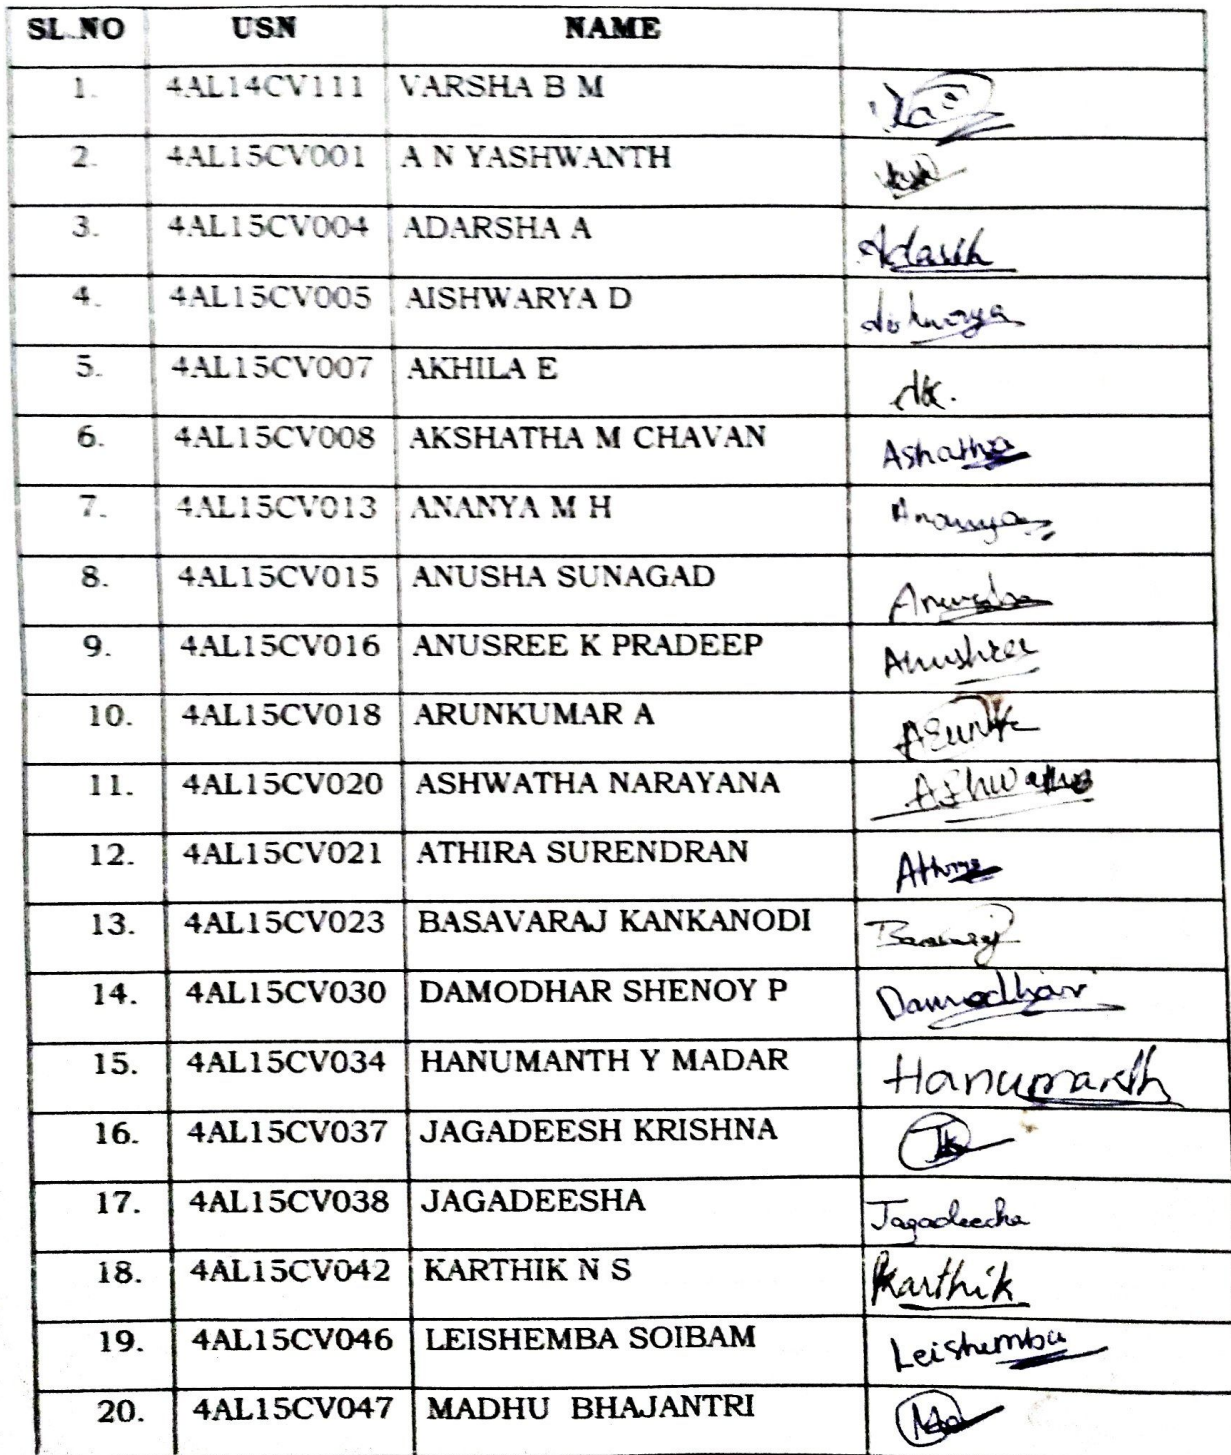 SL.NO USN NAME
1. 4AL14CV111 VARSHA B M
2. 4AL15CV001 A N YASHWANTH
3. 4AL15CV004 ADARSHA A Adarsh
4. 4AL15CV005 AISHWARYA D Aishwarya
5. 4AL15CV007 AKHILA E AK.
6. 4AL15CV008 AKSHATHA M CHAVAN Ashatha
7. 4AL15CV013 ANANYA M H Ananya
8. 4AL15CV015 ANUSHA SUNAGAD Anusha
9. 4AL15CV016 ANUSREE K PRADEEP Anushree
10. 4AL15CV018 ARUNKUMAR A
11. 4AL15CV020 ASHWATHA NARAYANA Ashwatha
12. 4AL15CV021 ATHIRA SURENDRAN
13. 4AL15CV023 BASAVARAJ KANKANODI
14. 4AL15CV030 DAMODHAR SHENOY P Damodhar
15. 4AL15CV034 HANUMANTH Y MADAR Hanumanth
16. 4AL15CV037 JAGADEESH KRISHNA JK
17. 4AL15CV038 JAGADEESHA Jagadeesha
18. 4AL15CV042 KARTHIK N S Karthik
19. 4AL15CV046 LEISHEMBA SOIBAM Leishemba
20. 4AL15CV047 MADHU BHAJANTRI